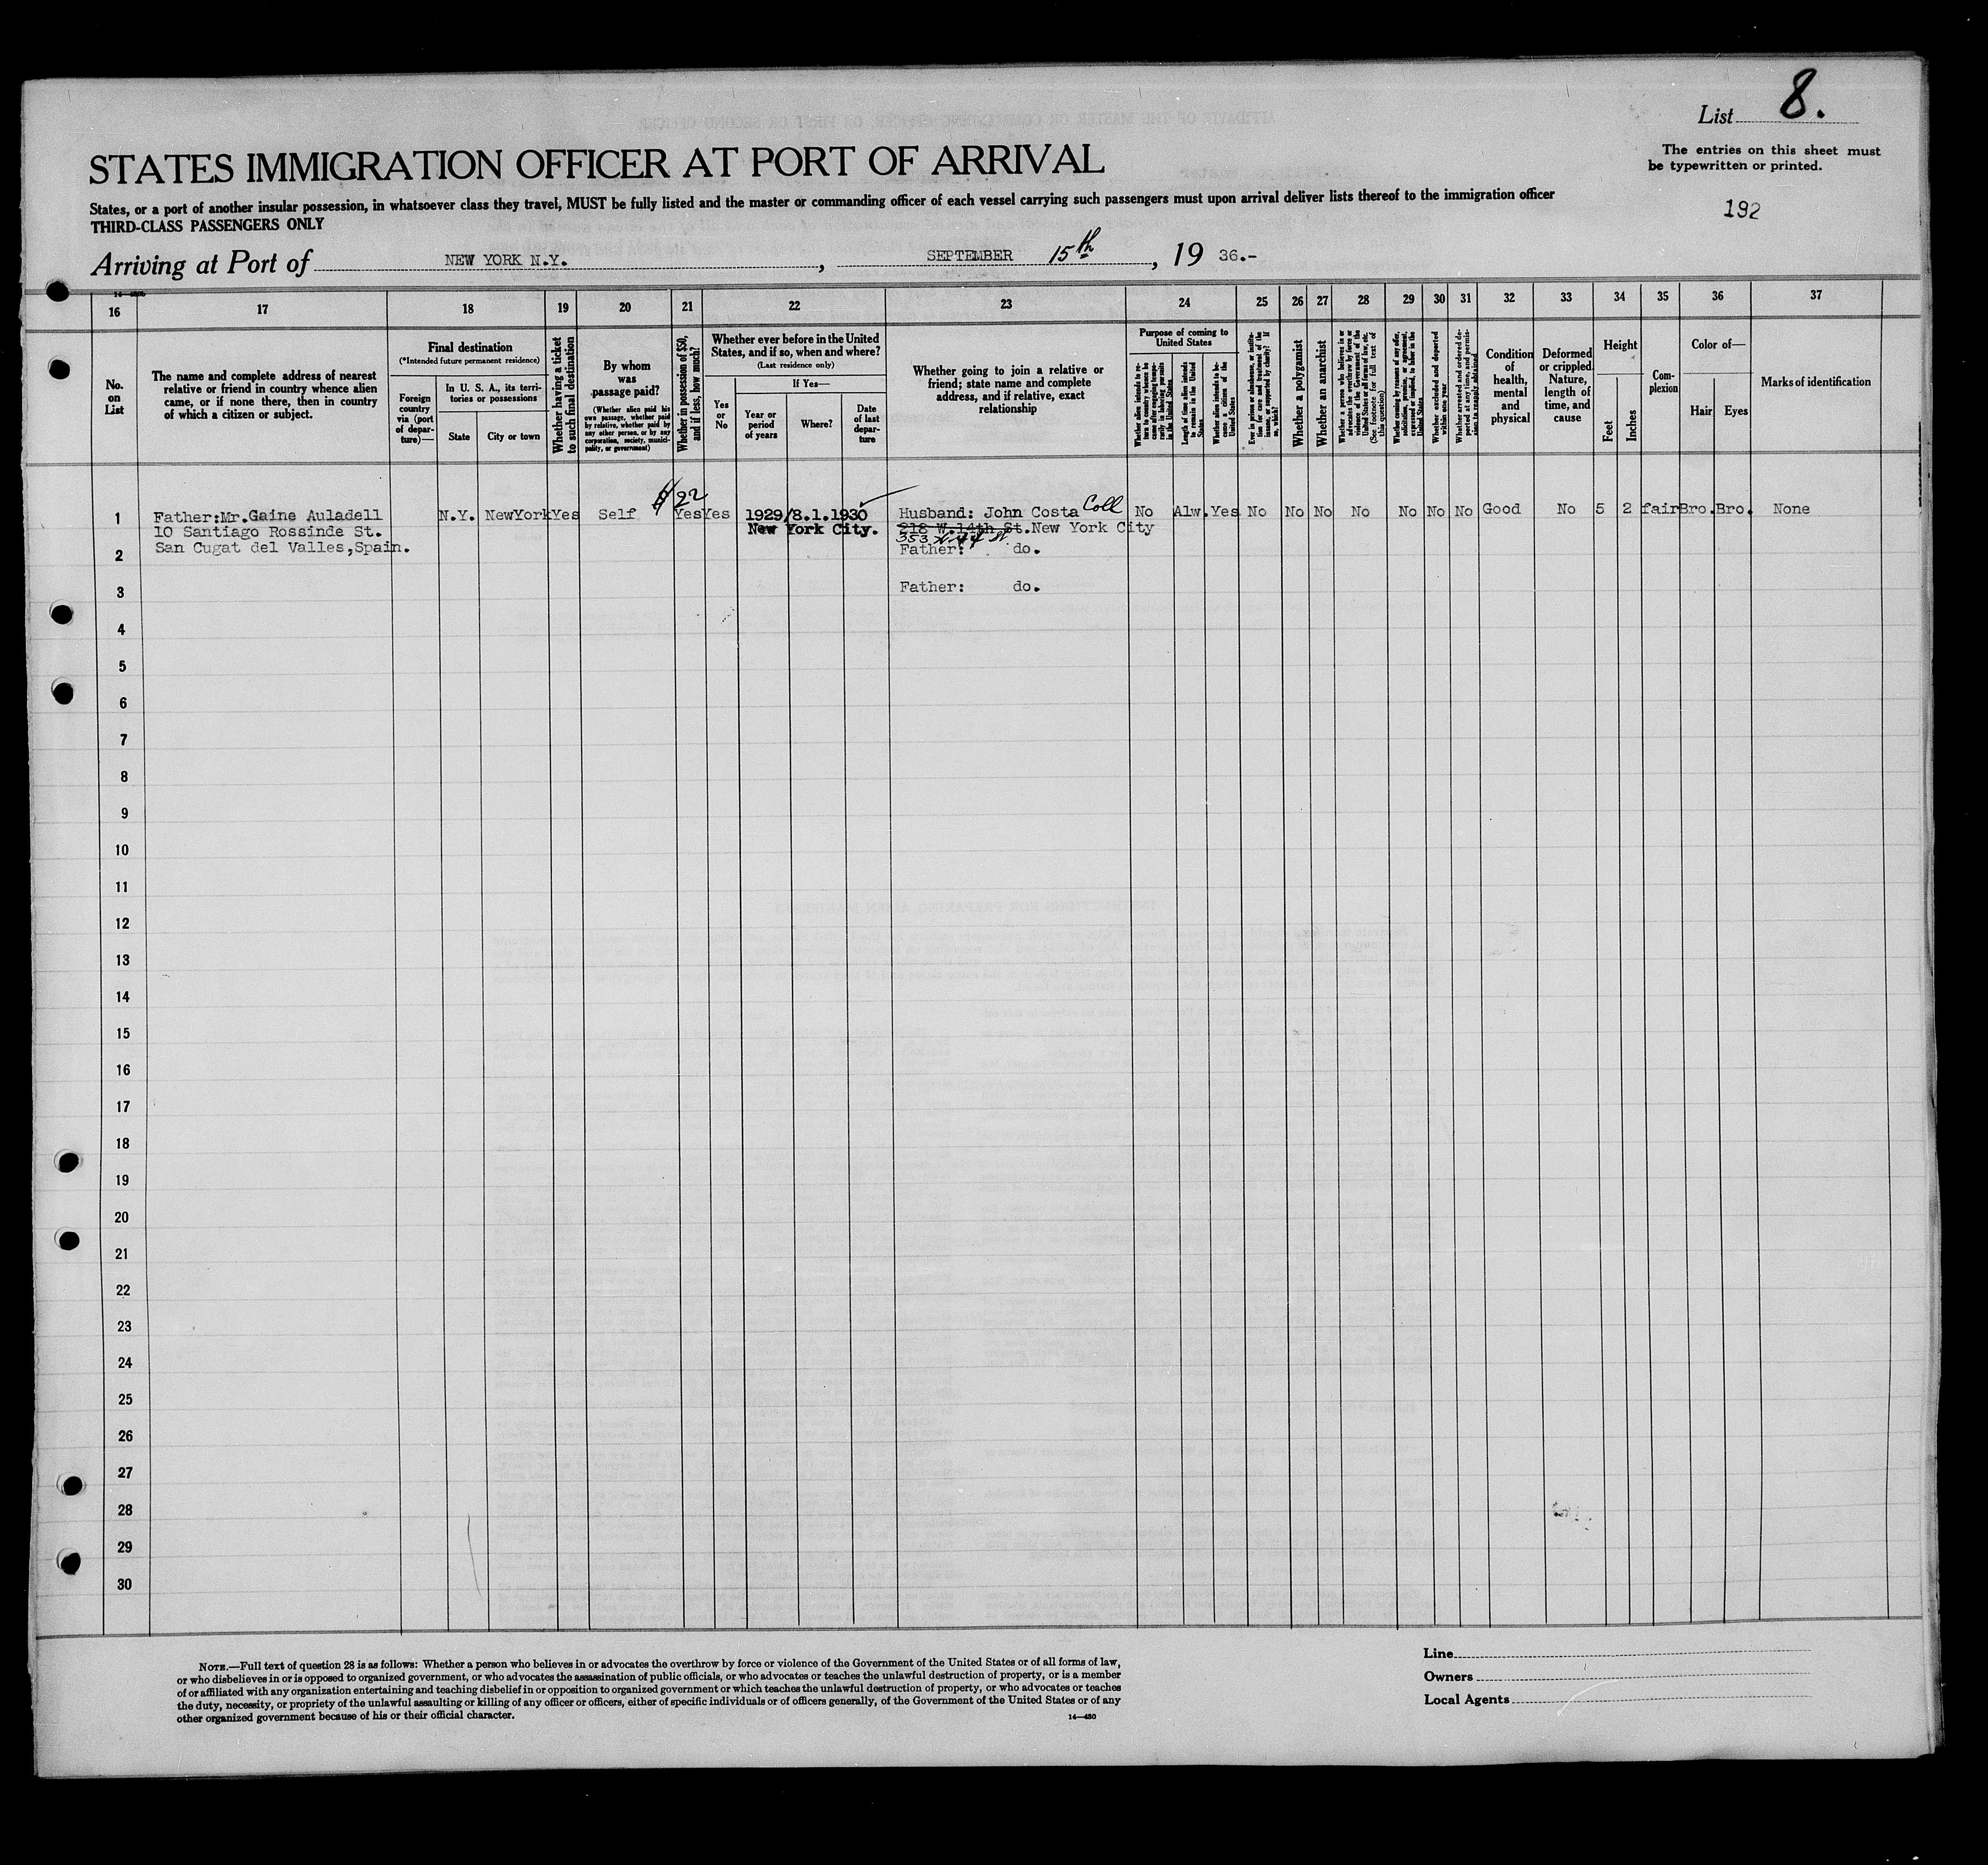 List 8.
The entries on this sheet must
be typewritten or printed.
192
STATES IMMIGRATION OFFICER AT PORT OF ARRIVAL
States, or a port of another insular possession, in whatsoever class they travel, MUST be fully listed and the master or commanding officer of each vessel carrying such passengers must upon arrival deliver lists thereof to the immigration officer
THIRD-CLASS PASSENGERS ONLY
Arriving at Port of NEW YORK N.Y., SEPTEMBER 15th, 19 36.-
16 17 18 19 20 21 22 23 24 25 26 27 28 29 30 31 32 33 34 35 36 37
No.
on
List
The name and complete address of nearest
relative or friend in country whence alien
came, or if none there, then in country
of which a citizen or subject.
Final destination
(*Intended future permanent residence)
Foreign
country
via (port
of depar-
ture)—
In U. S. A., its terri-
tories or possessions
State
City or town
Whether having a ticket
to such final destination
By whom
was
passage paid?
(Whether alien paid his
own passage, whether paid
by relative, whether paid by
any other person, or by any
corporation, society, munici-
pality, or government)
Whether in possession of $50,
and if less, how much?
Whether ever before in the United
States, and if so, when and where?
(Last residence only)
Yes
or
No
If Yes—
Year or
period
of years
Where?
Date
of last
depar-
ture
Whether going to join a relative or
friend; state name and complete
address, and if relative, exact
relationship
Purpose of coming to
United States
Whether alien intends to re-
turn to country whence he
came after engaging tempo-
rarily in laboring pursuits
in the United States
Length of time alien intends
to remain in the United
States
Whether alien intends to be-
come a citizen of the
United States
Ever in prison or almshouse, or institu-
tion for care and treatment of the
insane, or supported by charity? If
so, which?
Whether a polygamist
Whether an anarchist
Whether a person who believes in or
advocates the overthrow by force or
violence of the Government of the
United States or all forms of law, etc.
(See footnote for full text of
this question)
Whether coming by reason of any offer,
solicitation, promise, or agreement,
expressed or implied, to labor in the
United States
Whether excluded and deported
within one year
Whether arrested and ordered de-
ported at any time, and permis-
sion to reapply obtained
Condition
of
health,
mental
and
physical
Deformed
or crippled.
Nature,
length of
time, and
cause
Height
Feet
Inches
Com-
plexion
Color of—
Hair
Eyes
Marks of identification
$22
1 Father:Mr.Gaine Auladell N.Y. NewYork Yes Self Yes Yes 1929/8.1.1930 Husband: John Costa Coll No Alw. Yes No No No No No No No Good No 5 2 fair Bro. Bro. None
10 Santiago Rossinde St. New York City. 218 W.14th St.New York City
353 W. 44 St
2 San Cugat del Valles,Spain. Father: do.
3 Father: do.
4
5
6
7
8
9
10
11
12
13
14
15
16
17
18
19
20
21
22
23
24
25
26
27
28
29
30
NOTE.—Full text of question 28 is as follows: Whether a person who believes in or advocates the overthrow by force or violence of the Government of the United States or of all forms of law,
or who disbelieves in or is opposed to organized government, or who advocates the assassination of public officials, or who advocates or teaches the unlawful destruction of property, or is a member
of or affiliated with any organization entertaining and teaching disbelief in or opposition to organized government or which teaches the unlawful destruction of property, or who advocates or teaches
the duty, necessity, or propriety of the unlawful assaulting or killing of any officer or officers, either of specific individuals or of officers generally, of the Government of the United States or of any
other organized government because of his or their official character.
14—480
Line
Owners
Local Agents